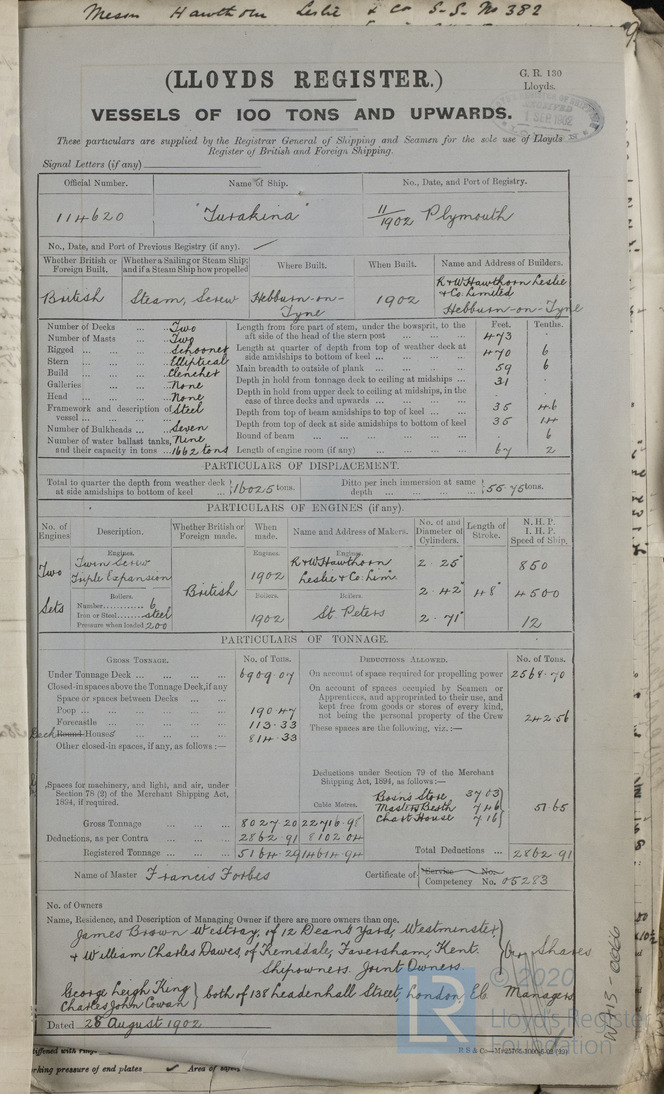 Messrs Hawthorn Leslie & Co S.S. No 382
(LLOYDS REGISTER.)
G. R. 130
Lloyds.
1 SEP 1902
VESSELS OF 100 TONS AND UPWARDS.
These particulars are supplied by the Registrar General of Shipping and Seamen for the sole use of Lloyds
Register of British and Foreign Shipping.
Signal Letters (if any)
Official Number. Name of Ship. No., Date, and Port of Registry.
114620 "Turakina" 11/1902 Plymouth
No., Date, and Port of Previous Registry (if any).
Whether British or Foreign Built. Whether a Sailing or Steam Ship; and if a Steam Ship how propelled Where Built. When Built. Name and Address of Builders.
British Steam, Screw Hebburn-on-Tyne 1902 R & W Hawthorn Leslie & Co. Limited Hebburn-on-Tyne
Number of Decks ... ... Two
Number of Masts ... ... Two
Rigged ... ... ... Schooner
Stern ... ... ... Elliptical
Build ... ... ... Clencher
Galleries ... ... None
Head ... ... ... None
Framework and description of vessel ... ... ... Steel
Number of Bulkheads ... ... Seven
Number of water ballast tanks, and their capacity in tons ... Nine 1662 tons
Feet. Tenths.
Length from fore part of stem, under the bowsprit, to the aft side of the head of the stern post ... ... ... 473 .
Length at quarter of depth from top of weather deck at side amidships to bottom of keel ... ... ... 470 6
Main breadth to outside of plank ... ... ... 59 6
Depth in hold from tonnage deck to ceiling at midships ... 31 .
Depth in hold from upper deck to ceiling at midships, in the case of three decks and upwards ... ... ... . .
Depth from top of beam amidships to top of keel ... ... 35 46
Depth from top of deck at side amidships to bottom of keel 35 14
Round of beam ... ... ... . 6
Length of engine room (if any) ... ... ... 67 2
PARTICULARS OF DISPLACEMENT.
Total to quarter the depth from weather deck at side amidships to bottom of keel 16025 tons. Ditto per inch immersion at same depth ... ... ... 55.75 tons.
PARTICULARS OF ENGINES (if any).
No. of Engines Description. Whether British or Foreign made. When made. Name and Address of Makers. No. of and Diameter of Cylinders. Length of Stroke. N. H. P. I. H. P. Speed of Ship.
Engines. Engines. Engines.
Two Sets Twin Screw Triple Expansion British 1902 R & W Hawthorn Leslie & Co. Lim. 2. 25" 850
Boilers. Boilers. Boilers
Number............ 6 2. 42" 48" 4500
Iron or Steel....... steel
Pressure when loaded 200 1902 St. Peters 2. 71" 12
PARTICULARS OF TONNAGE.
GROSS TONNAGE. No. of Tons. DEDUCTIONS ALLOWED. No. of Tons.
Under Tonnage Deck ... ... ... 6909.07
On account of space required for propelling power 2568.70
Closed-in spaces above the Tonnage Deck, if any
Space or spaces between Decks ... ...
Poop ... ... ... ... 190.47
Forecastle ... ... ... 113.33
Deck Round Houses ... ... 814.33
Other closed-in spaces, if any, as follows:—
On account of spaces occupied by Seamen or Apprentices, and appropriated to their use, and kept free from goods or stores of every kind, not being the personal property of the Crew 242.56
These spaces are the following, viz.:—
Deductions under Section 79 of the Merchant Shipping Act, 1894, as follows:—
Cubic Metres. Bosns Store 3703
Masters Berth 746
Chart House 716 51.65
Spaces for machinery, and light, and air, under Section 78 (2) of the Merchant Shipping Act, 1894, if required.
Gross Tonnage ... ... 8027.20 22716.98
Deductions, as per Contra ... ... 2862.91 8102.04
Registered Tonnage ... ... 5164.29 14614.94
Total Deductions ... 2862.91
Name of Master Francis Forbes Certificate of Service No. Competency No. 05283
No. of Owners
Name, Residence, and Description of Managing Owner if there are more owners than one.
James Brown Westray, of 12 Deans Yard, Westminster
& William Charles Dawes, of Kemsdale, Faversham, Kent. Shares
Shipowners. Joint Owners.
George Leigh King
Charles John Cowan both of 138 Leadenhall Street, London, EC Managers
Dated 28 August 1902
R S & Co
W715-0066
© 2020
LR
Lloyd's Register
Foundation
stiffened with rings
working pressure of end plates
Area of